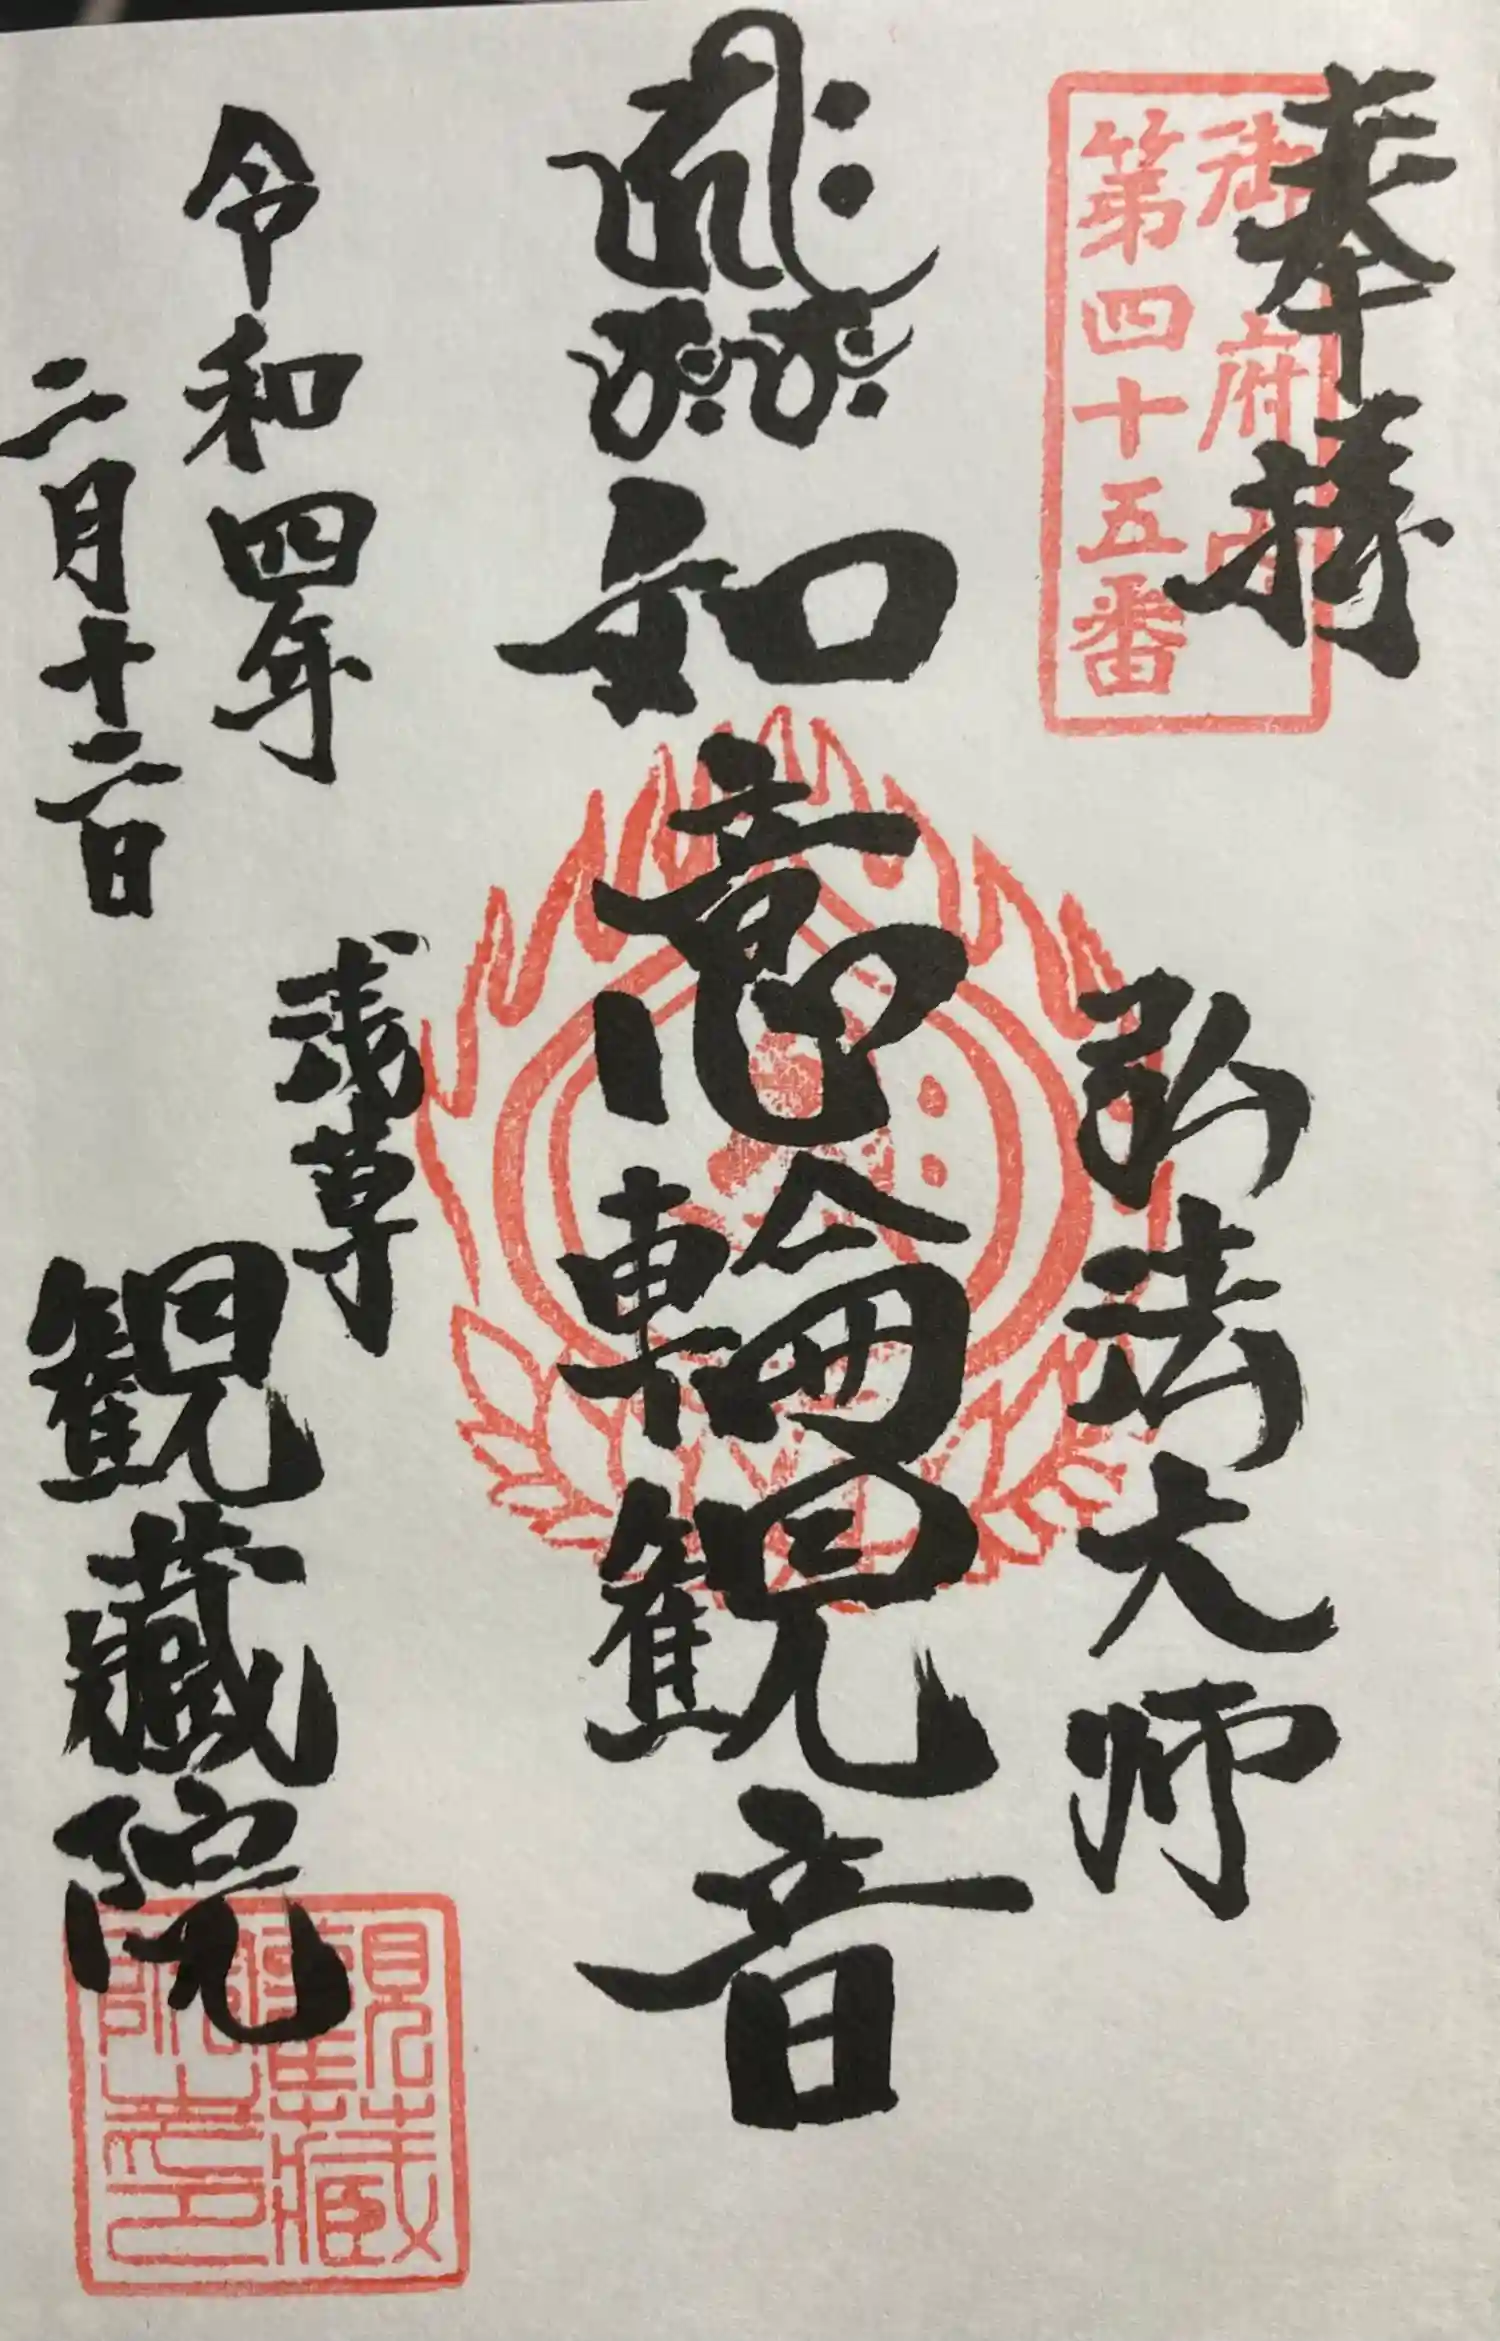 奉拝
御府内
第四十五番
弘法大師
如意輪観音
令和四年
二月十二日
浅草
観蔵院
觀藏
院印